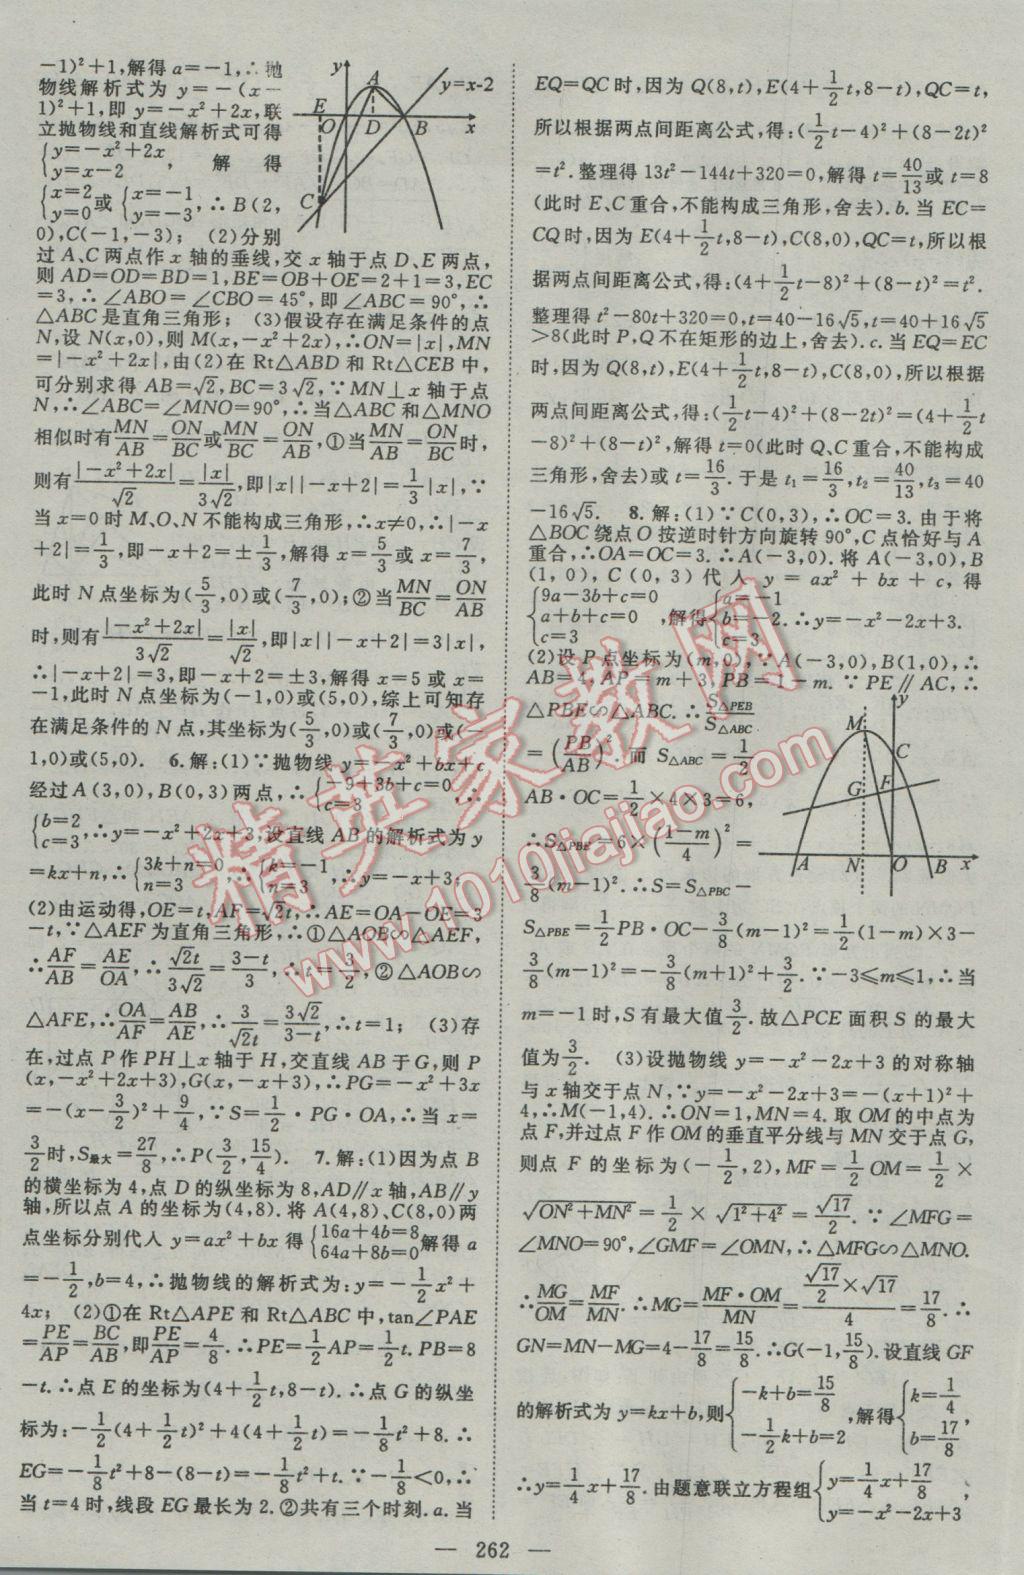 -1)²+1,解得a=-1,∴抛
物线解析式为 y=-(x-
1)²+1,即y=-x²+2x,联
立抛物线和直线解析式可得
{y=-x²+2x y=x-2, 解得
{x=2 y=0或{x=-1 y=-3,∴B(2,
0),C(-1,-3); (2)分别
过A、C两点作x轴的垂线,交x轴于点D、E两点,
则AD=OD=BD=1,BE=OB+OE=2+1=3,EC
=3,∴∠ABO=∠CBO=45°,即∠ABC=90°,∴
△ABC是直角三角形; (3)假设存在满足条件的点
N,设N(x,0),则M(x,-x²+2x),∴ON=|x|,MN
=|-x²+2x|,由(2)在Rt△ABD和Rt△CEB中,
可分别求得AB=√2,BC=3√2,∵MN⊥x轴于点
N,∴∠ABC=∠MNO=90°,∴当△ABC和△MNO
相似时有MN/AB=ON/BC或MN/BC=ON/AB,①当MN/AB=ON/BC时,
则有|-x²+2x|/√2=|x|/3√2,即|x||-x+2|=1/3|x|,∵
当x=0时M、O、N不能构成三角形,∴x≠0,∴|-x
+2|=1/3,即-x+2=±1/3,解得x=5/3或x=7/3,
此时N点坐标为(5/3,0)或(7/3,0);②当MN/BC=ON/AB
时,则有|-x²+2x|/3√2=|x|/√2,即|x||-x+2|=3|x|,
∴|-x+2|=3,即-x+2=±3,解得x=5或x=
-1,此时N点坐标为(-1,0)或(5,0),综上可知存
在满足条件的N点,其坐标为(5/3,0)或(7/3,0)或(-
1,0)或(5,0). 6.解:(1)∵抛物线y=-x²+bx+c
经过A(3,0),B(0,3)两点,∴{-9+3b+c=0 c=3,∴
{b=2 c=3,∴y=-x²+2x+3,设直线AB的解析式为y
=kx+n,∴{3k+n=0 n=3,∴{k=-1 n=3,∴y=-x+3;
(2)由运动得,OE=t,AF=√2t,∴AE=OA-OE=3
-t,∵△AEF为直角三角形,∴①△AOB∽△AEF,
∴AF/AB=AE/OA,∴√2t/3√2=3-t/3,∴t=3/2,②△AOB∽
△AFE,∴OA/AF=AB/AE,∴3/√2t=3√2/3-t,∴t=1; (3)存
在,过点P作PH⊥x轴于H,交直线AB于G,则P
(x,-x²+2x+3),G(x,-x+3),∴PG=-x²+3x
=-(x-3/2)²+9/4,∵S=1/2·PG·OA,∴当x=
3/2时,S最大=27/8,∴P(3/2,15/4). 7.解:(1)因为点B
的横坐标为4,点D的纵坐标为8,AD∥x轴,AB∥y
轴,所以点A的坐标为(4,8).将A(4,8)、C(8,0)两
点坐标分别代入y=ax²+bx得{16a+4b=8 64a+8b=0解得a
=-1/2,b=4,∴抛物线的解析式为:y=-1/2x²+
4x; (2)①在Rt△APE和Rt△ABC中,tan∠PAE
=PE/AP=BC/AB,即PE/AP=4/8.∴PE=1/2AP=1/2t.PB=8
-t.∴点E的坐标为(4+1/2t,8-t).∴点G的纵坐
标为:-1/2(4+1/2t)²+4(4+1/2t)=-1/8t²+8.∴
EG=-1/8t²+8-(8-t)=-1/8t²+t.∵-1/8<0,∴
当t=4时,线段EG最长为2.②共有三个时刻.a.当
y
A
y=x-2
E
O
D
B
x
C
EQ=QC时,因为Q(8,t),E(4+1/2t,8-t),QC=t,
所以根据两点间距离公式,得:(1/2t-4)²+(8-2t)²
=t².整理得13t²-144t+320=0,解得t=40/13或t=8
(此时E、C重合,不能构成三角形,舍去).b.当EC=
CQ时,因为E(4+1/2t,8-t),C(8,0),QC=t,所以根
据两点间距离公式,得:(4+1/2t-8)²+(8-t)²=t².
整理得t²-80t+320=0,t=40-16√5,t=40+16√5
>8(此时P,Q不在矩形的边上,舍去).c.当EQ=EC
时,因为Q(8,t),E(4+1/2t,8-t),C(8,0),所以根据
两点间距离公式,得:(1/2t-4)²+(8-2t)²=(4+1/2t
-8)²+(8-t)²,解得t=0(此时Q、C重合,不能构成
三角形,舍去)或t=16/3.于是t₁=16/3,t₂=40/13,t₃=40
-16√5. 8.解:(1)∵C(0,3),∴OC=3.由于将
△BOC绕点O按逆时针方向旋转90°,C点恰好与A
重合,∴OA=OC=3.∴A(-3,0).将A(-3,0),B
(1,0),C(0,3)代入 y=ax²+bx+c,得
{9a-3b+c=0 a+b+c=0 c=3,解得{a=-1 b=-2. c=3 ∴y=-x²-2x+3.
(2)设P点坐标为(m,0),∵A(-3,0),B(1,0),∴
AB=4,AP=m+3,PB=1-m.∵PE∥AC,∴
△PBE∽△ABC.∴S△PEB/S△ABC
=(PB/AB)² 而S△ABC=1/2
AB·OC=1/2×4×3=6,
∴S△PBE=6×(1-m/4)²=
3/8(m-1)².∴S=S△PBC-
S△PBE=1/2PB·OC-3/8(m-1)²=1/2(1-m)×3-
3/8(m-1)²=-3/8(m+1)²+3/2.∵-3≤m≤1,∴当
m=-1时,S有最大值3/2.故△PCE面积S的最大
值为3/2. (3)设抛物线y=-x²-2x+3的对称轴
与x轴交于点N,∵y=-x²-2x+3=-(x+1)²+
4,∴M(-1,4).∴ON=1,MN=4.取OM的中点为
点F,并过点F作OM的垂直平分线与MN交于点G,
则点F的坐标为(-1/2,2),MF=1/2OM=1/2×
√ON²+MN²=1/2×√1²+4²=√17/2.∵∠MFG=
∠MNO=90°,∠GMF=∠OMN,∴△MFG∽△MNO.
∴MG/OM=MF/MN.∴MG=MF·OM/MN=√17/2×√17/4=17/8.∴
GN=MN-MG=4-17/8=15/8.∴G(-1,15/8).设直线GF
的解析式为y=kx+b,则{-k+b=15/8 -1/2k+b=2,解得{k=1/4, b=17/8
∴y=1/4x+17/8.由题意联立方程组{y=1/4x+17/8 y=-x²-2x+3,
y
M
C
G
F
A
N
O
B
x
精英家教网
www.1010jiajiao.com
— 262 —